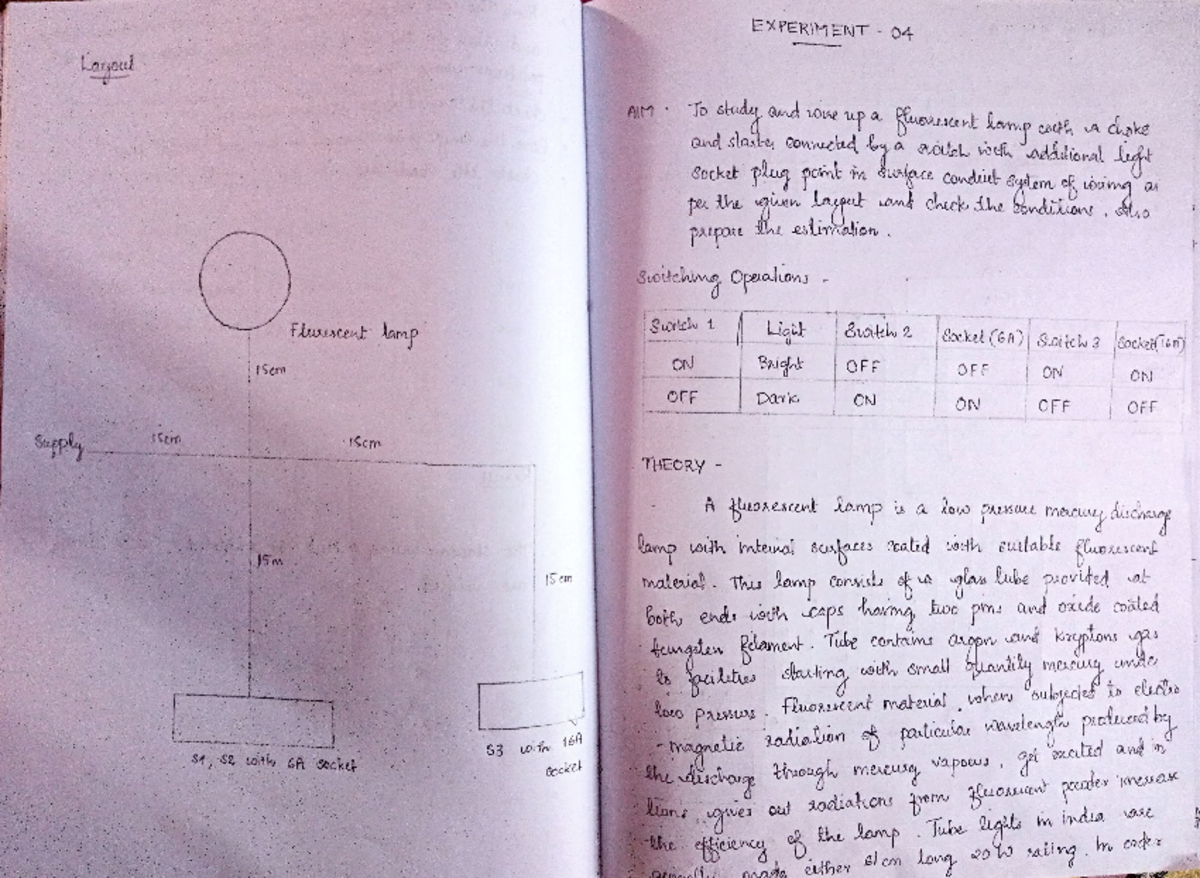 Layout
Flurescent lamp
15cm
Supply
15cm
15cm
15m
15cm
S1, S2 with 6A socket
S3 with 16A
socket
EXPERIMENT - 04
AIM · To study and wire up a fluorescent lamp with a choke
and starter connected by a switch with additional light
socket plug point in surface conduit system of wiring as
per the given layout and check the conditions. Also
prepare the estimation.
Switching Operations -
Switch 1 Light Switch 2 Socket (6A) Switch 3 Socket (16A)
ON Bright OFF OFF ON ON
OFF Dark ON ON OFF OFF
THEORY -
A fluorescent lamp is a low pressure mercury discharge
lamp with internal surfaces coated with suitable fluorescent
material. This lamp consists of a glass tube provided at
both ends with caps having two pins and oxide coated
tungsten filament. Tube contains argon and kryptons gas
to facilities starting with small quantity mercury under
low pressure. Fluorescent material, when subjected to electro
-magnetic radiation of particular wavelength produced by
the discharge through mercury vapours, get excited and in
gives out radiations from fluorescent powder increase
the efficiency of the lamp. Tube lights in india are
made either 61cm long 20W rating. In order